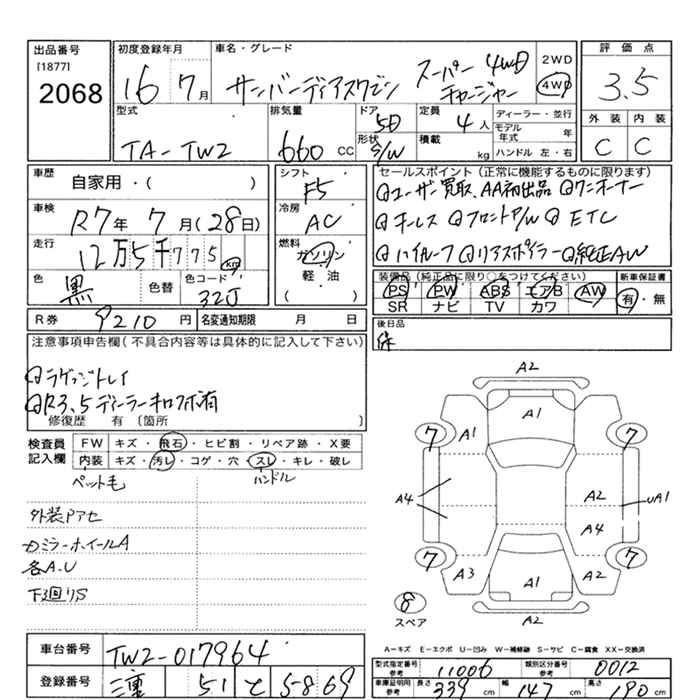 出品番号
[1877]
2068
初度登録年月
16 7月
車名・グレード
サンバーディアスワゴン スーパーチャージャー 4WD
2WD
4WD
評価点
3.5
外装 内装
C C
型式
TA-TW2
排気量
660 cc
ドア
5D
形状
S/W
定員
4人
積載
kg
ディーラー・並行
モデル年式 年
ハンドル 左・右
車歴
自家用・( )
車検
R7年 7月(28日)
走行
12万5千775 km
色
黒
色替
色コード
32J
シフト
F5
冷房
AC
燃料
ガソリン
軽・油
( )
R券
9210円
名変通知期限 月 日
セールスポイント(正常に機能するものに限ります)
ユーザー買取、AA初出品 ワンオーナー
キーレス フロントP/W ETC
ハイルーフ リアスポイラー 純正AW
装備品(純正品に限り○をつけてください)
PS PW ABS エアB AW
SR ナビ TV カワ
新車保証書
有・無
後日品
注意事項申告欄(不具合内容等は具体的に記入して下さい)
ラゲッジトレイ
R3.5ディーラーキロスウホ有
修復歴 有 〔箇所
検査員記入欄
FW キズ・飛石・ヒビ割・リペア跡・X要
内装 キズ・汚レ・コゲ・穴・スレ・キレ・破レ
ペット毛
ハンドル
外装Pアセ
カミラーホイールA
各A.U
下廻りS
A2
A1
7 A1 7
A4
A2
UA1
A4
7 A3 A1 A2 7
8
スペア
A2
A-キズ E-エクボ U-凹み W-補修跡 S-サビ C-腐食 XX-交換済
車台番号
TW2-017964
登録番号
三重 51 と 58-69
型式指定番号 参考
11006
類別区分番号 参考
0012
車庫証明用 参考
長さ 339 cm
幅 147 cm
高さ 190 cm